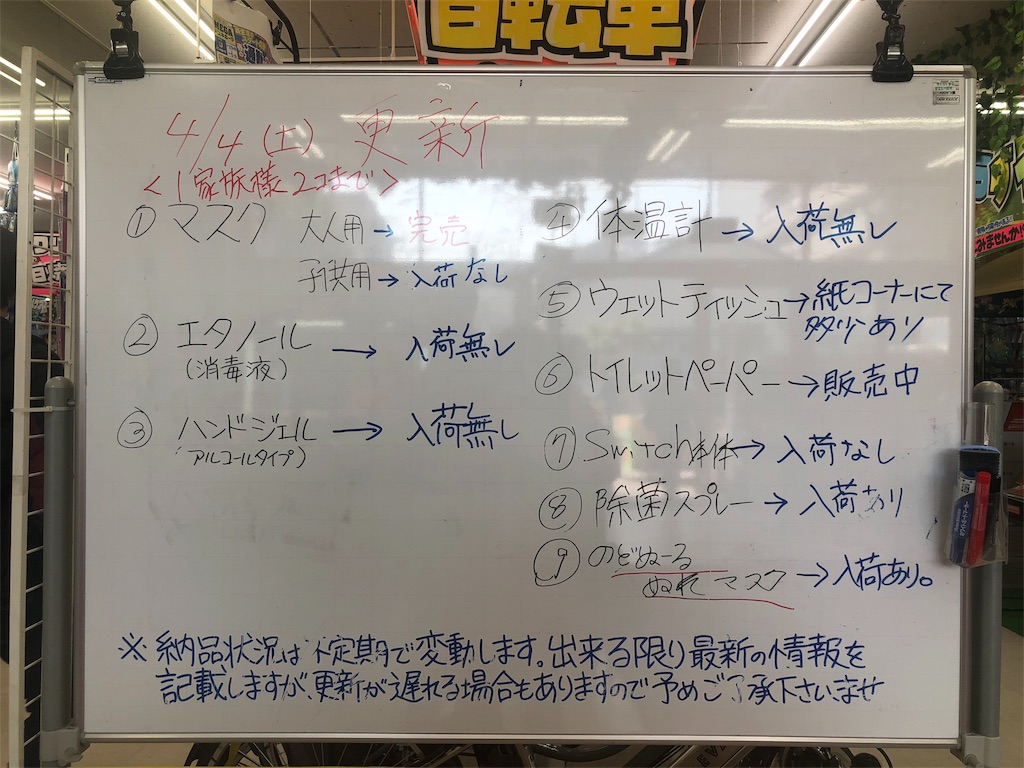 自転車
4/4(土) 更新
<1家族様2コまで>
① マスク 大人用→完売
子供用→入荷なし
② エタノール → 入荷無し
(消毒液)
③ ハンドジェル → 入荷無し
(アルコールタイプ)
④ 体温計 → 入荷無し
⑤ ウェットティッシュ→紙コーナーにて
多少あり
⑥ トイレットペーパー→販売中
⑦ Switch本体→入荷なし
⑧ 除菌スプレー→入荷あり
⑨ のどぬーる
ぬれマスク→入荷あり。
※納品状況は不定期で変動します。出来る限り最新の情報を
記載しますが、更新が遅れる場合もありますので予めご了承下さいませ